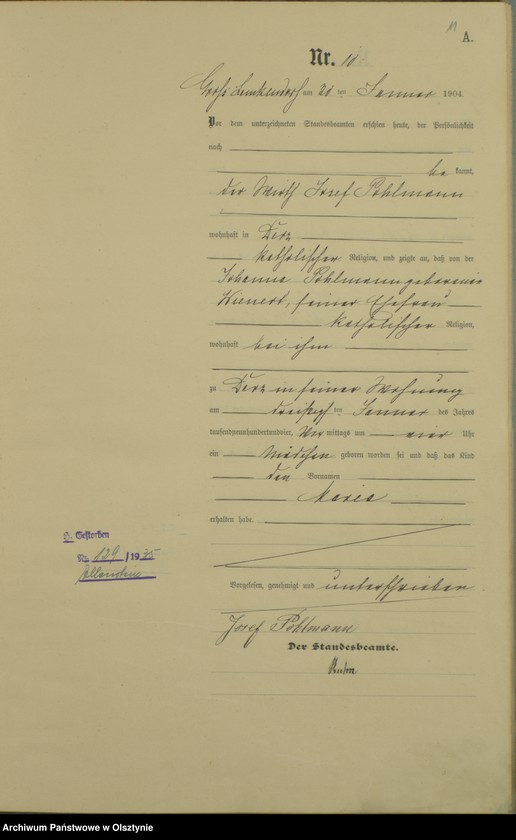 11
A.
Nr. 10
Groß Lemkendorf am 21 ten Januar 1904.
Vor dem unterzeichneten Standesbeamten erschien heute, der Persönlichkeit
nach
be kannt,
der Wirth Josef Pohlmann
wohnhaft in Derz
katholischer Religion, und zeigte an, daß von der
Johanna Pohlmann geborenen
Wienert, seiner Ehefrau
katholischer Religion,
wohnhaft bei ihm
zu Derz in seiner Wohnung
am ten Januar des Jahres
tausendneunhundertundvier, Vor mittags um vier Uhr
ein Mädchen geboren worden sei und daß das Kind
den Vornamen
Maria
erhalten habe.
Vorgelesen, genehmigt und unterschrieben
Josef Pohlmann
Der Standesbeamte.
Gestorben
Nr. 129 / 1935
Allenstein
Archiwum Państwowe w Olsztynie